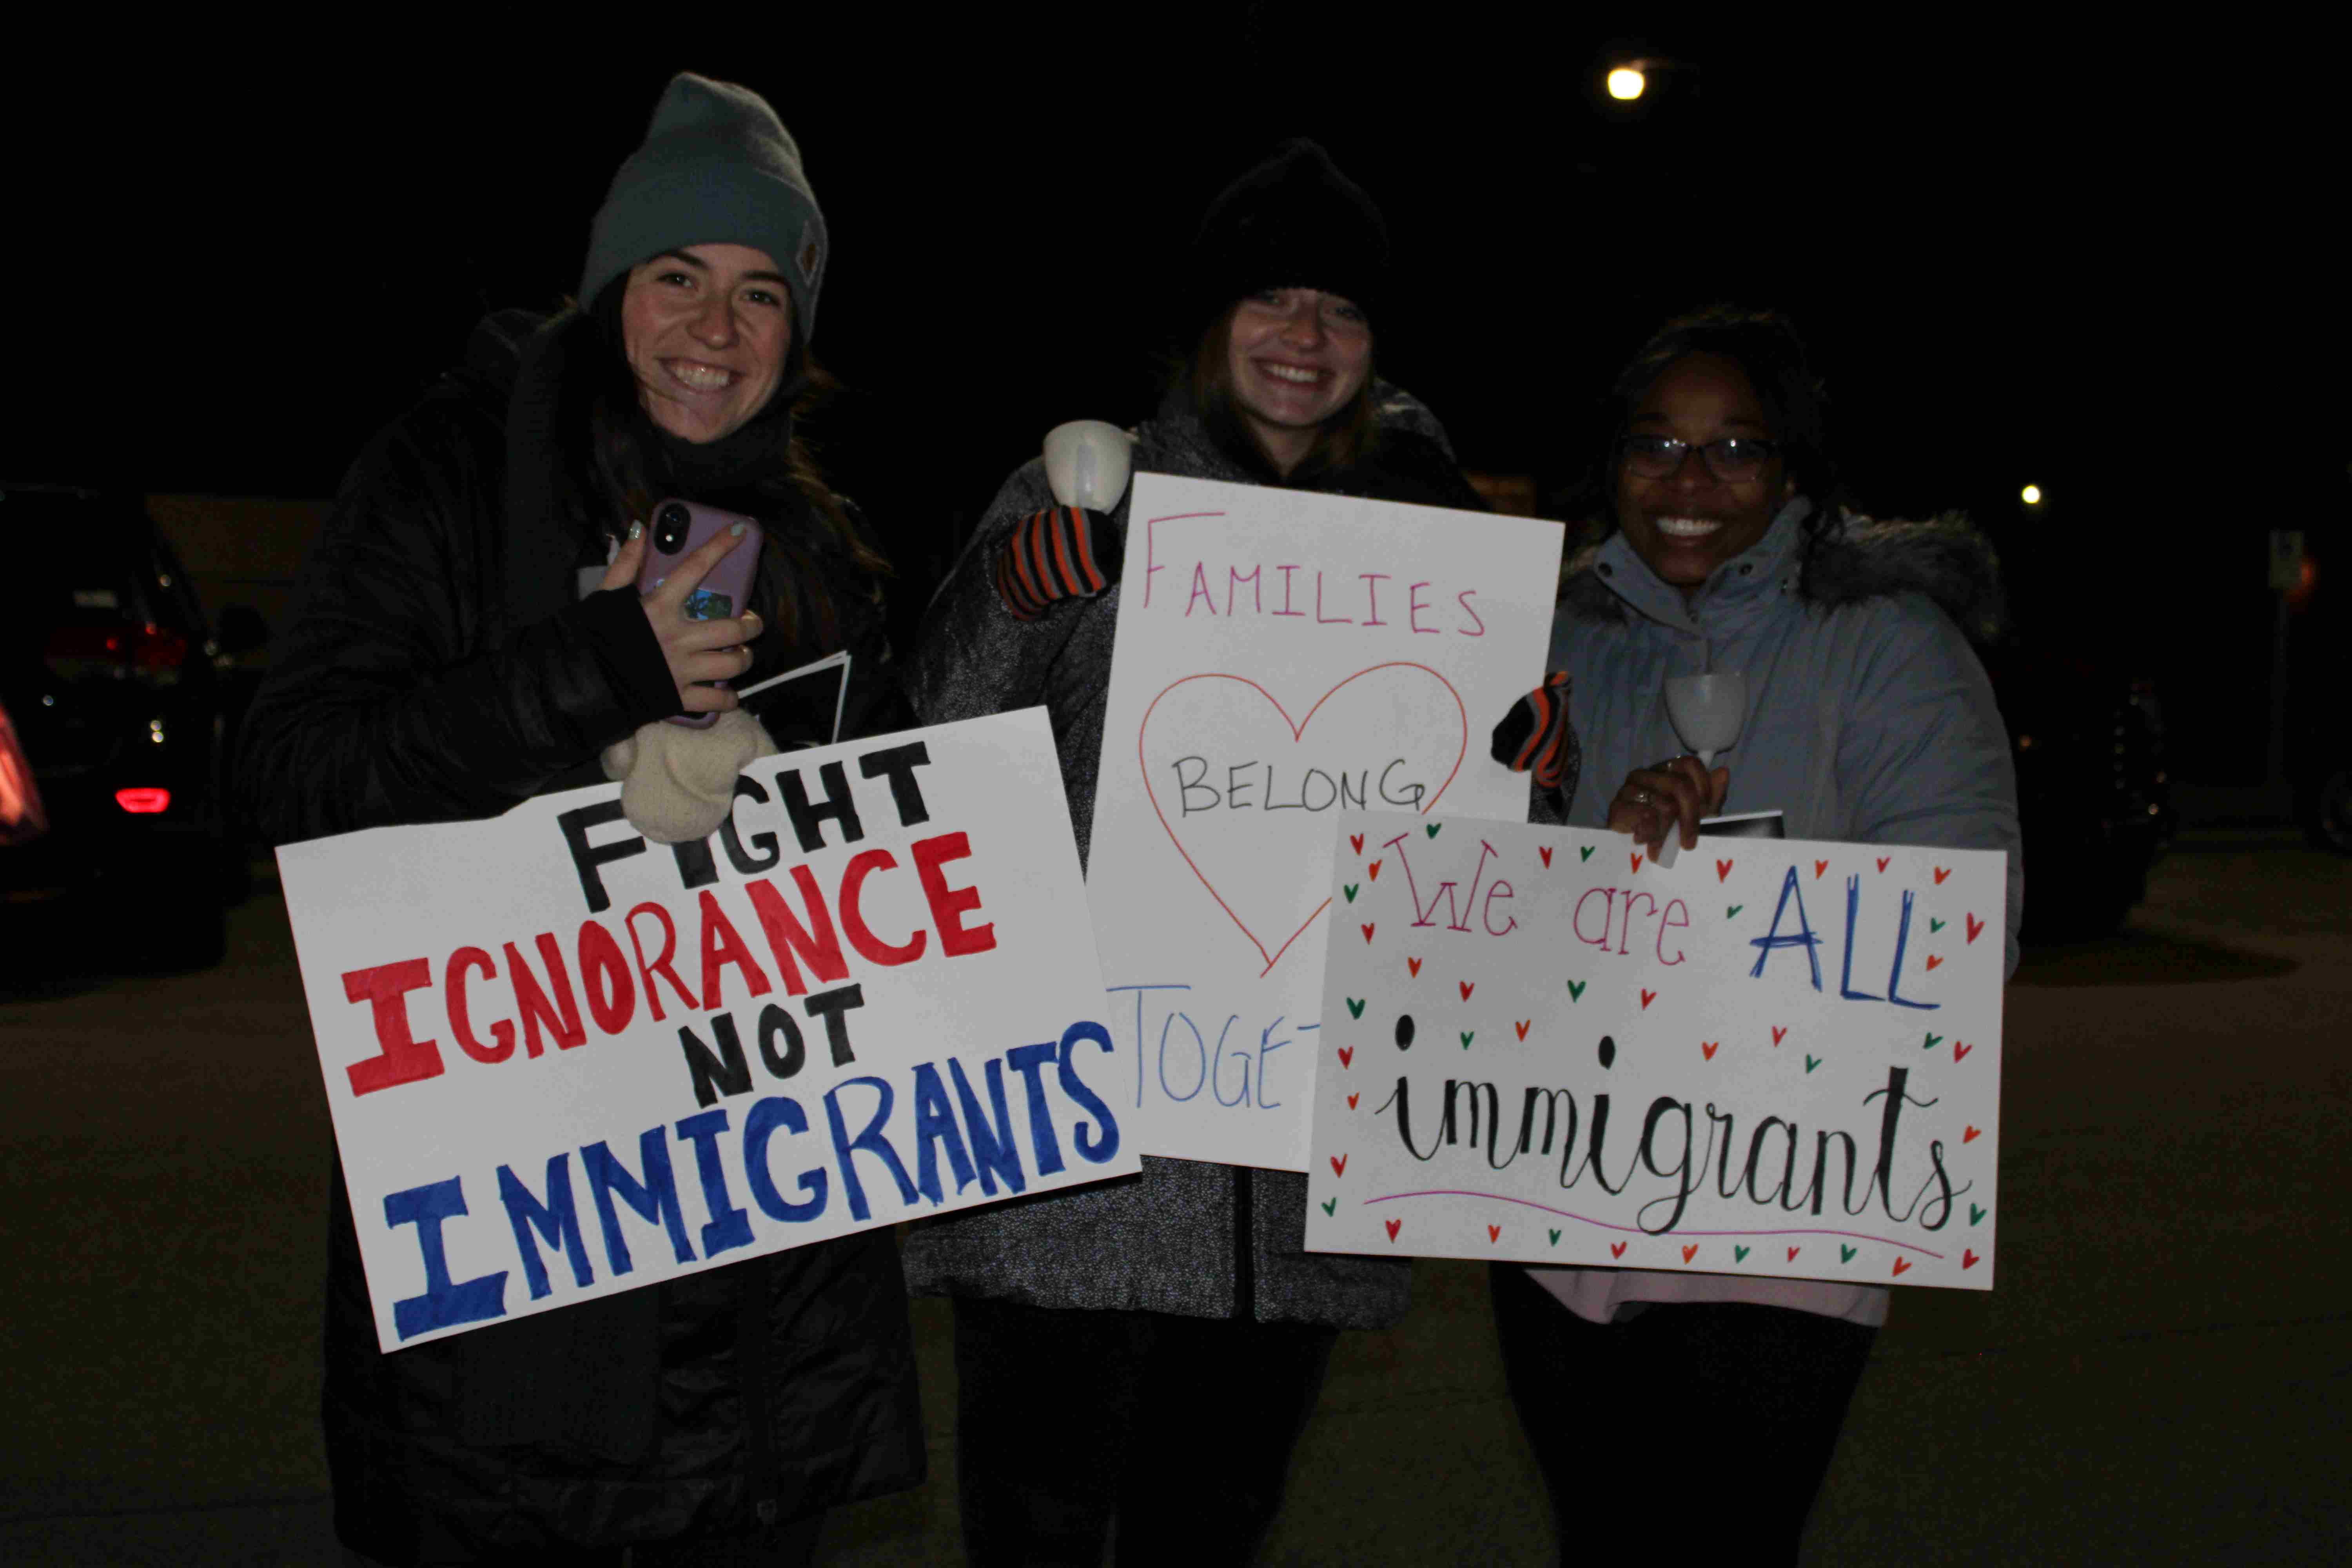 FIGHT
IGNORANCE
NOT
IMMIGRANTS
FAMILIES
BELONG
TOGET
We are ALL
immigrants